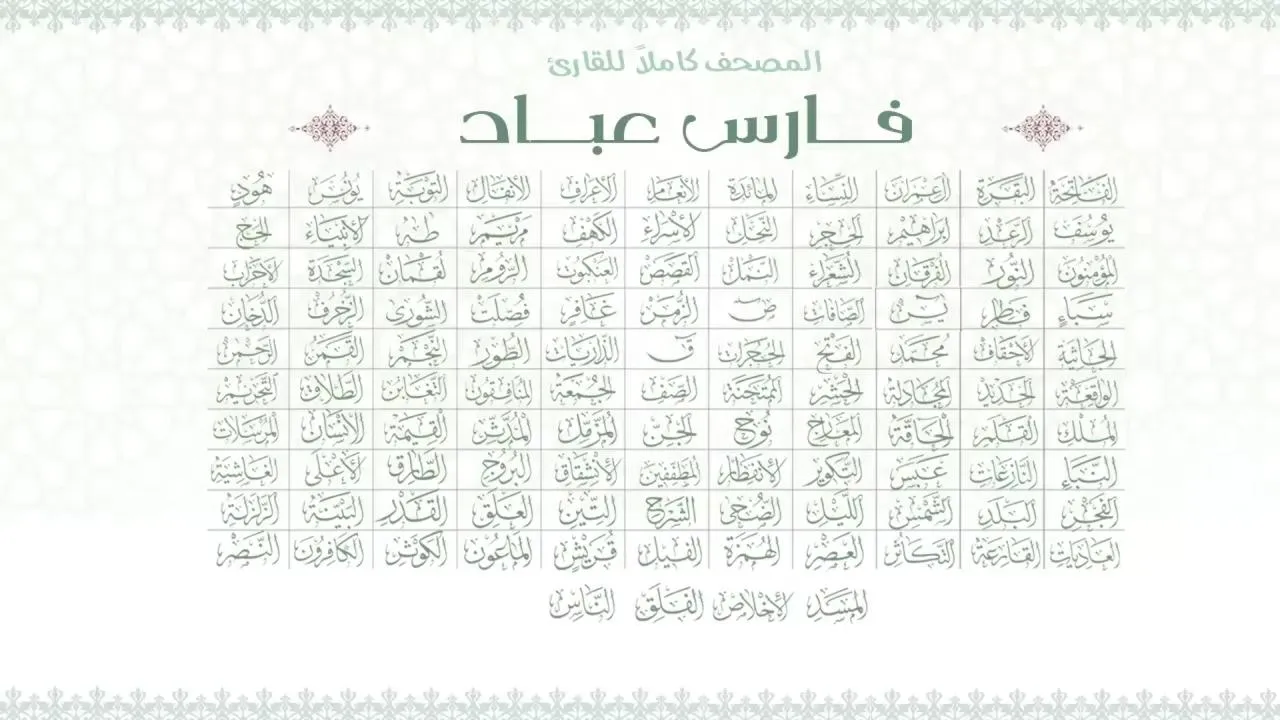 المصحف كاملاً للقارئ
فارس عباد
الفَاتِحَة البَقَرَة آل عِمْرَان النِّسَاء المَائدة الأنعَام الأعرَاف الأنفَال التوبَة يُونُس هُود
يُوسُف الرَّعْد إبراهِيم الحِجر النَّحل الإسْرَاء الكهْف مَريَم طه الأنبيَاء الحَج
المُؤمنون النُّور الفُرقان الشُعَرَاء النَّمل القَصَص العنكبوت الرُّوم لُقمَان السَّجدَة الأحزاب
سَبَإ فَاطِر يسٓ الصَّافات صٓ الزُّمَر غَافِر فُصِّلَتْ الشُّورى الزّخرُف الدُّخان
الجاثية الأحقاف محَمد الفَتْح الحُجرَات قٓ الذَّاريَات الطُّور النَّجْم القَمَر الرَّحمن
الواقعَة الحَديد المجَادلة الحَشر المُمتَحنَة الصَّف الجُمُعَة المنَافِقون التغَابُن الطّلَاق التَّحْريم
المُلك القَلَم الحَاقَّة المعَارج نُوح الجِنّ المُزَّمل المُدَّثر القِيَامَة الإنسَان المُرسَلات
النَّبَإ النّازعَات عَبَس التَّكوير الانفطار المطفّفين الانشقَاق البُرُوج الطَّارق الأعْلَى الغَاشِيَة
الفَجْر البَلَد الشَّمْس اللَّيْل الضُّحى الشرح التِّين العَلَق القَدْر البَيّنَة الزَّلزَلة
العَاديَات القَارعَة التَّكَاثر العَصر الهُمَزَة الفِيل قُرَيش المَاعُون الكَوثر الكَافِرون النَّصْر
المَسَد الإخْلَاص الفَلَق النَّاس